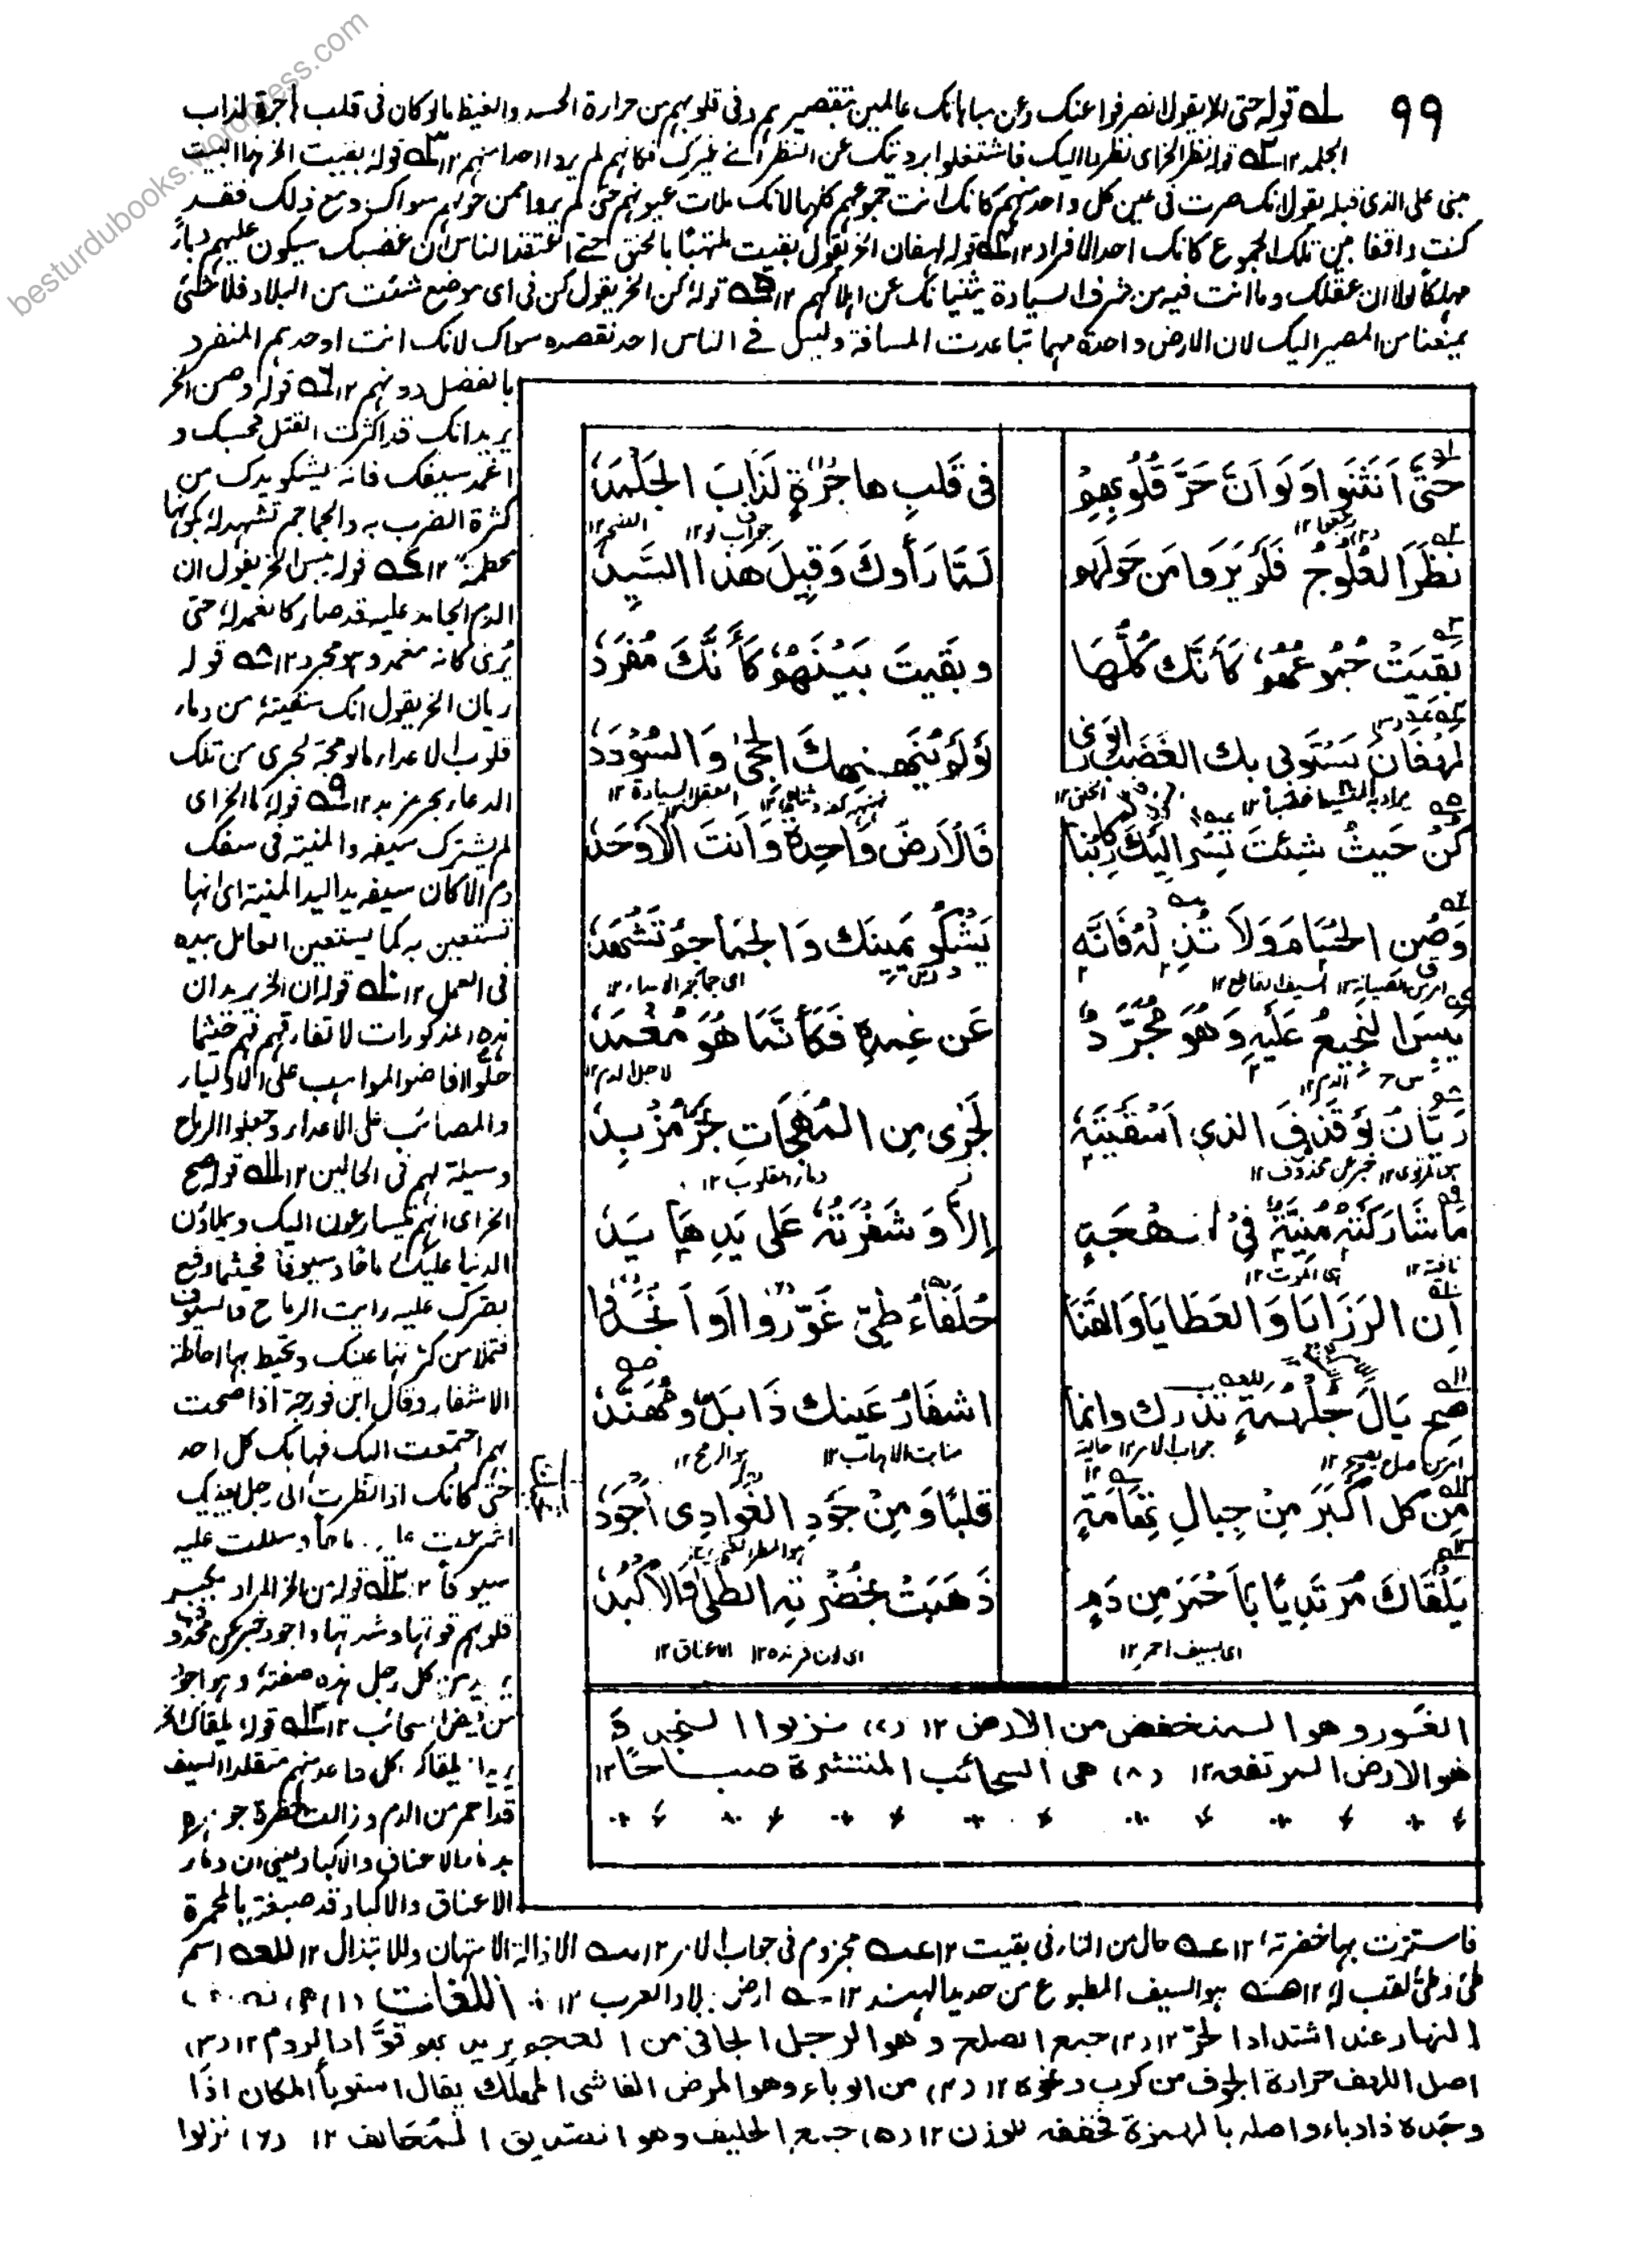 besturdubooks.wordpress.com
٩٩
قوله حتى الا يقول انصرفوا عنك وعن مباہاتک عالمين بتقصيرہم وفى قلوبہم من حرارة الحسد والغيظ مالو كان فى قلب ہاجرة لذاب
الجلمد ١٢ قوله نظر الخ اى نظروا اليك فاشتغلوا برويتك عن النظر الى غيرك فكانہم لم يروا احدا منہم ١٢ قوله بقيت الخ ہذا البيت
مبنى على الذى قبله يقول انك صرت فى عين كل واحد منہم كانك انت جموعہم كلہا لانك ملات عيونہم حتى لم يروا من حولہم سواك ومع ذلك فقد
كنت واقفا بين تلك الجموع كانك احد الافراد ١٢ قوله لہفان الخ يقول بقيت ملتہبا بالحنق حتى اعتقد الناس ان غضبك سيكون عليہم وباءً
مہلكا لولا ان عقلك وما انت فيه من شرف السيادة يثنيانك عن اہلاكہم ١٢ قوله كن الخ يقول كن فى اى موضع شئت من البلاد فلا شئ
يمنعنا من المصير اليك لان الارض واحدة مہما تباعدت المسافة وليس فى الناس احد نقصده سواك لانك انت اوحدہم المنفرد
بالفضل دونہم ١٢ قوله وصن الخ
يريد انك قد اكثرت القتل فحسبك و
اغمد سيفك فانه يشكو يدك من
كثرة الضرب به والجماجم تشہد له بكونہا
محطمة ١٢ قوله يبس الخ يقول ان
الدم الجامد عليه قد صار كالغمد له حتى
يُرى كانه مغمد وہو مجرد ١٢ قوله
ريان الخ يقول انك سقيته من دماء
قلوب الاعداء مالو مجه لجرى من تلك
الدماء بحر مزبد ١٢ قوله ما الخ اى
لم يشترك سيفه والمنية فى سفك
دم الا كان سيفه يدا ليد المنية اى انہا
تستعين به كما يستعين العامل بيده
فى العمل ١٢ قوله ان الخ يريد ان
ہذه المذكورات لا تفارقہم فہم حيثما
حلوا افاضوا المواہب على الاولياء
والمصائب على الاعداء وجعلوا الرماح
وسيلة لہم فى الحالين ١٢ قوله صح
الخ اى انہم يسارعون اليك ويملاؤن
الدنيا عليك رماحا وسيوفا فحيثما وقع
بصرك عليه رايت الرماح والسيوف
فتملا من كثرتہا عينك وتحيط بہا احاطة
الاشفار وقال ابن فورجة اذا صحت
بہم اجتمعت اليك فہابك كل احد
حتى كانك اذا نظرت الى رجل بعينك
اشرعت رماحا وسللت عليه
سيوفا ١٢ قوله من الخ المراد بكبر
قلوبہم قوتہا وشدتہا واجود خبر عن محذوف
يريد من كل رجل ہذه صفته وہو اجود
من فيض السحائب ١٢ قوله يلقاك الخ
يريد يلقاك كل واحد منہم متقلدا السيف
قد احمر من الدم وزالت خضرة جوہره
بدماء الاعناق والاكباد يعنى ان دماء
الاعناق والاكباد قد صبغته بالحمرة
حَتّٰى انْثَنَوا وَلَوَ انَّ حَرَّ قُلُوبِهِمْ
فى قَلبِ هاجِرَةٍ لَذَابَ الجَلْمَدُ
رجعوا ١٢
جواب لو ١٢
نَظَرَ العُلُوجُ فَلَم يَرَوا مَن حَولَهُم
لَمَّا رَأوكَ وَقِيلَ هَذا السَّيِّدُ
بَقِيَتْ جُمُوعُهُمُ كَأنَّكَ كُلُّهَا
وبَقِيتَ بَيْنَهُمُ كَأَنَّكَ مُفْرَدُ
لَهْفَانَ يَسْتَوبِى بك الغَضَبَ الوَرٰى
لَوْ لَم يُنَهْنِهْكَ الحِجٰى وَالسُّؤدَدُ
العقل السيادة ١٢
كُنْ حَيثُ شِئتَ تَسِرْ اليكَ رِكَابُنَا
فَالأرضُ وَاحِدَةٌ وَأنتَ الأوحَدُ
وَصُنِ الحُسَامَ وَلَا تُذِلْهُ فَانَّه
يَشْكُو يَمِينَك وَالجَمَاجِمُ تَشْهَدُ
امر من الصيانة ١٢ السيف القاطع ١٢
يَبِسَ النَجِيعُ عَلَيهِ وَهُوَ مُجَرَّدٌ
عَن غِمدِهِ فَكَأَنَّمَا هُوَ مُغْمَدُ
الدم ١٢
لاجل الدم ١٢
رَيَّانُ لَو قَذَفَ الذى اَسْقَيتَهٗ
لَجَرٰى مِن المُهَجَاتِ بَحْرٌ مُزْبِدُ
خبر عن محذوف ١٢
دماء القلوب ١٢
مَا شَارَكَتْهُ مَنِيَّةٌ فِى مُهْجَةٍ
اِلَّا وَشَفْرَتُهٗ عَلٰى يَدِهَا يَدُ
نافية ١٢
اى الموت ١٢
اِنّ الرَزَايَا وَالعَطَايَا وَالقَنَا
حُلَفَاءُ طَىٍّ غَوَّرُوا اَو اَنجَدُوا
صِح يَالَ جُلْهُمَةٍ تَذَرْكَ وانما
اشفَارُ عَينِك ذَابِلٌ ومُهَنَّدُ
جواب الامر ١٢ حالية
منابت الاہداب ١٢
ہو الرمح ١٢
مِن كل اَكْبَرَ مِنْ جِبالِ تِهَامَةٍ
قلبًا وَمِنْ جَودِ الغَوادِى اَجْوَدُ
يَلْقَاكَ مُرتَدِيًا بِاَحْمَرَ مِن دَمٍ
ذَهَبَتْ بِخُضْرَتِهِ الطُّلٰى وَالاَكْبُدُ
اى بسيف احمر ١٢
اى لون فرنده ١٢ الاعناق ١٢
الغَور وهو المنخفض من الارض ١٢ (٧) نزلوا النجد وَ
هو الارض المرتفعه ١٢ (٨) هى السحائب المنتشرة صباحًا ١٢
فاستترت بہا خضرته ١٢ حال من التاء فى بقيت ١٢ مجزوم فى جواب الامر ١٢ الاذالة الامتہان والابتذال ١٢ اسم
طئ وطئ لقب له ١٢ ہو السيف المطبوع من حديد الہند ١٢ ارض ببلاد العرب ١٢ اللغات (١)
النهار عند اشتداد الحرّ ١٢ (٢) جمع العلج وهو الرجل الجافى من العجم يريد بهم قُوّاد الروم ١٢ (٣)
اصل اللهف حرارة الجوف من كرب وغيره ١٢ (٤) من الوباء وهو المرض الفاشى المهلك يقال استوبأ المكان اذا
وجده ذا وباء واصله بالهمزة فخففه للوزن ١٢ (٥) جمع الحليف وهو الصديق المُحَالف ١٢ (٦) نزلوا